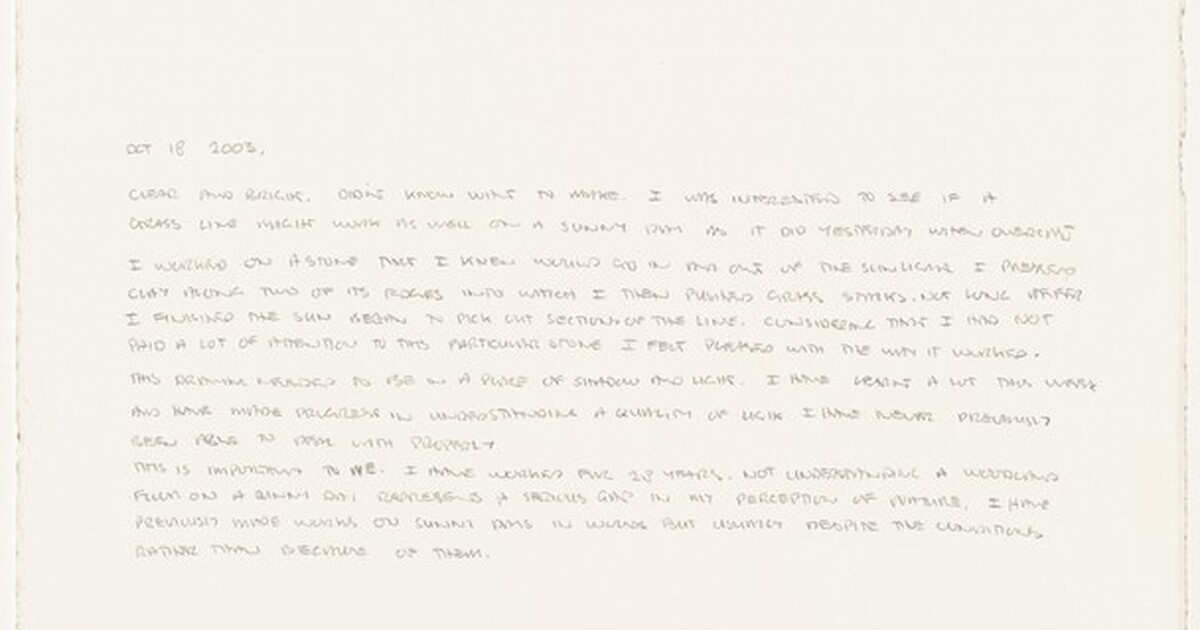 OCT 18 2003.
CLEAR AND BRIGHT. DIDN'T KNOW WHAT TO MAKE. I WAS INTERESTED TO SEE IF A
GRASS LINE MIGHT WORK AS WELL ON A SUNNY DAY AS IT DID YESTERDAY WHEN OVERCAST
I WORKED ON A STONE THAT I KNEW WOULD GO IN AND OUT OF THE SUNLIGHT I PRESSED
CLAY ALONG TWO OF ITS EDGES INTO WHICH I THEN PUSHED GRASS STALKS. NOT LONG AFTER
I FINISHED THE SUN BEGAN TO PICK OUT SECTIONS OF THE LINE. CONSIDERING THAT I HAD NOT
PAID A LOT OF ATTENTION TO THIS PARTICULAR STONE I FELT PLEASED WITH THE WAY IT WORKED.
THIS DRAWING NEEDED TO BE IN A PLACE OF SHADOW AND LIGHT. I HAVE LEARNT A LOT THIS WEEK
AND HAVE MADE PROGRESS IN UNDERSTANDING A QUALITY OF LIGHT I HAVE NEVER PREVIOUSLY
BEEN ABLE TO DEAL WITH PROPERLY
THIS IS IMPORTANT TO ME. I HAVE WORKED FOR 28 YEARS. NOT UNDERSTANDING A WOODLAND
FLOOR ON A SUNNY DAY REPRESENTS A SERIOUS GAP IN MY PERCEPTION OF NATURE. I HAVE
PREVIOUSLY MADE WORKS ON SUNNY DAYS IN WOODS BUT USUALLY DESPITE THE CONDITIONS
RATHER THAN BECAUSE OF THEM.